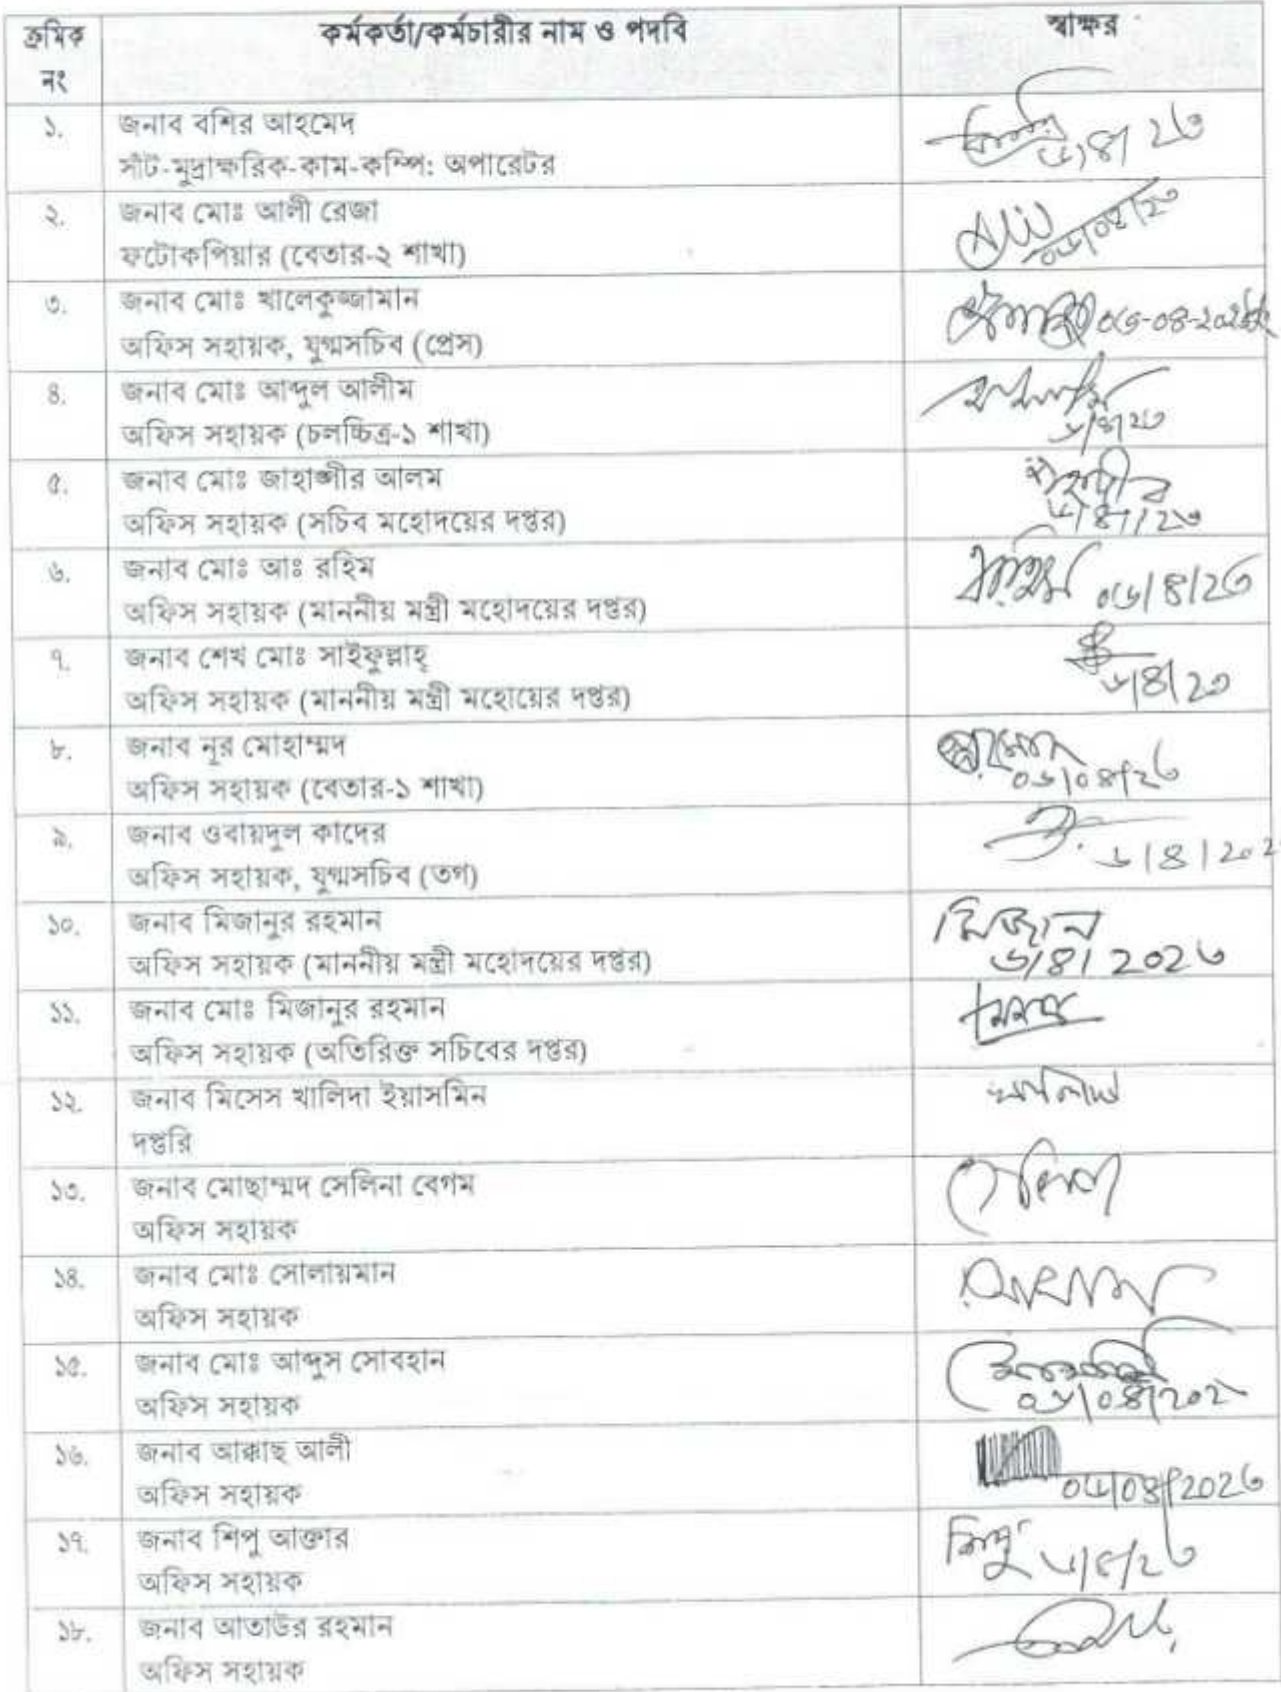 ক্রমিক নং কর্মকর্তা/কর্মচারীর নাম ও পদবি স্বাক্ষর
১. জনাব বশির আহমেদ
সাঁট-মুদ্রাক্ষরিক-কাম-কম্পি: অপারেটর
২. জনাব মোঃ আলী রেজা
ফটোকপিয়ার (বেতার-২ শাখা)
৩. জনাব মোঃ খালেকুজ্জামান
অফিস সহায়ক, যুগ্মসচিব (প্রেস)
৪. জনাব মোঃ আব্দুল আলীম
অফিস সহায়ক (চলচ্চিত্র-১ শাখা)
৫. জনাব মোঃ জাহাঙ্গীর আলম
অফিস সহায়ক (সচিব মহোদয়ের দপ্তর)
৬. জনাব মোঃ আঃ রহিম
অফিস সহায়ক (মাননীয় মন্ত্রী মহোদয়ের দপ্তর)
৭. জনাব শেখ মোঃ সাইফুল্লাহ্
অফিস সহায়ক (মাননীয় মন্ত্রী মহোয়ের দপ্তর)
৮. জনাব নূর মোহাম্মদ
অফিস সহায়ক (বেতার-১ শাখা)
৯. জনাব ওবায়দুল কাদের
অফিস সহায়ক, যুগ্মসচিব (তগ)
১০. জনাব মিজানুর রহমান মিজান
অফিস সহায়ক (মাননীয় মন্ত্রী মহোদয়ের দপ্তর) ৬/৪/২০২৬
১১. জনাব মোঃ মিজানুর রহমান
অফিস সহায়ক (অতিরিক্ত সচিবের দপ্তর)
১২. জনাব মিসেস খালিদা ইয়াসমিন
দপ্তরি
১৩. জনাব মোছাম্মদ সেলিনা বেগম
অফিস সহায়ক
১৪. জনাব মোঃ সোলায়মান
অফিস সহায়ক
১৫. জনাব মোঃ আব্দুস সোবহান
অফিস সহায়ক
১৬. জনাব আক্কাছ আলী
অফিস সহায়ক ০৬/০৪/২০২৬
১৭. জনাব শিপু আক্তার শিপু
অফিস সহায়ক
১৮. জনাব আতাউর রহমান
অফিস সহায়ক